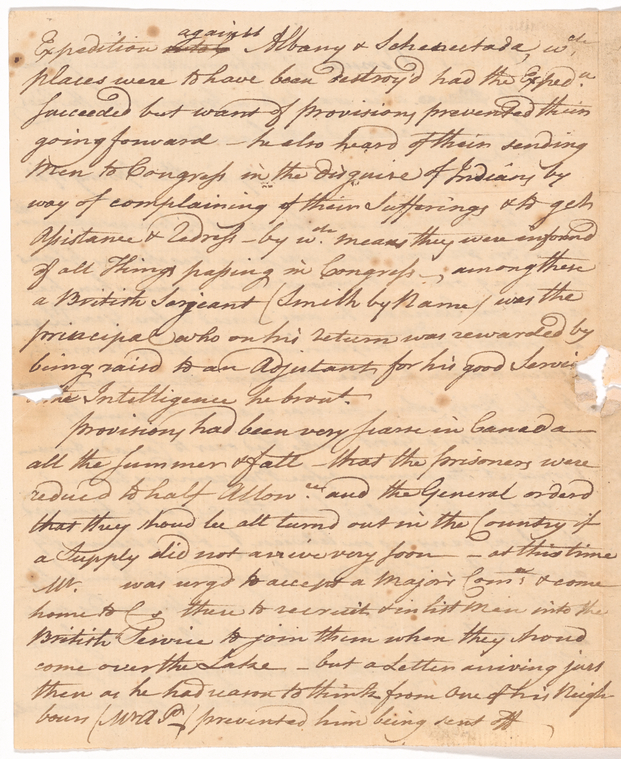 Expedition against Albany & Schenectada, wch
places were to have been destroy'd had the Expedn.
Succeeded but want of provisions prevented their
going forward – he also heard of their sending
Men to Congress in the disguise of Indians by
way of complaining of their Sufferings & to get
Assistance & Redress – by wch. means they were informd
of all Things passing in Congress –, among these
a British Serjeant (Smith by Name) was the
principal who on his return was rewarded by
being raisd to an Adjutant for his good Servi
the Intelligence he brout.
provisions had been very scarse in Canada –
all the Summer & fall – that the prisoners were
reduced to half Allowce. and the General orderd
that they shoud be all turnd out in the Country if
a Supply did not arrive very soon – – at this time
Mr. was urgd to accept a Major's Comn. & come
home to C there to recruit & inlist Men into the
British Service to join them when they shoud
come over the Lake – but a Letter arriving just
then as he had reason to think from One of his Neigh-
bours (Mr A P) prevented him being sent off